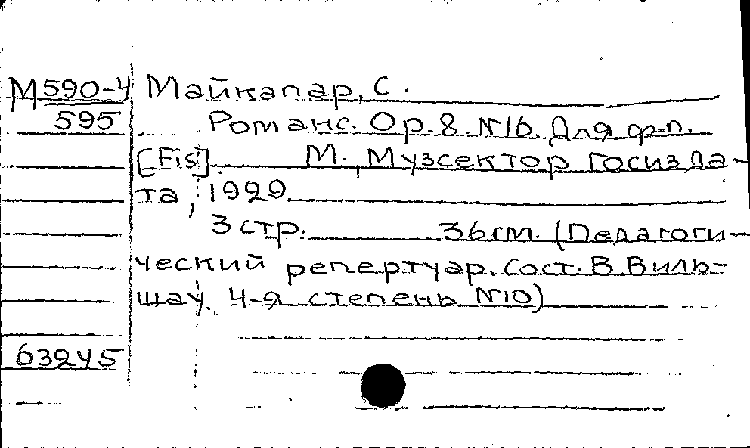 М590-4 Майкапар, С.
595 Романс. Op. 8 №1б. Для ф-п.
[Fis]. М., Музсектор Госизда-
та, 1929.
3 стр. 36 см. (Педагоги-
ческий репертуар. Сост. В. Виль-
шау. 4-я степень №10)
63245